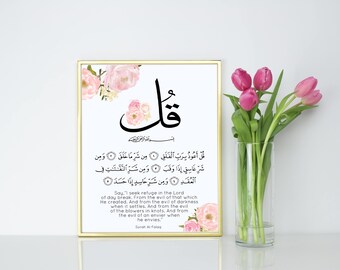 قُل
بسم الله الرحمن الرحيم
قُلْ أَعُوذُ بِرَبِّ الْفَلَقِ ۝١ مِن شَرِّ مَا خَلَقَ ۝٢ وَمِن
شَرِّ غَاسِقٍ إِذَا وَقَبَ ۝٣ وَمِن شَرِّ النَّفَّاثَاتِ فِي
الْعُقَدِ ۝٤ وَمِن شَرِّ حَاسِدٍ إِذَا حَسَدَ ۝٥
Say, "I seek refuge in the Lord
of day break. From the evil of that which
He created. And from the evil of darkness
when it settles. And from the evil
of the blowers in knots. And from
the evil of an envier when
he envies."
Surah Al-Falaq